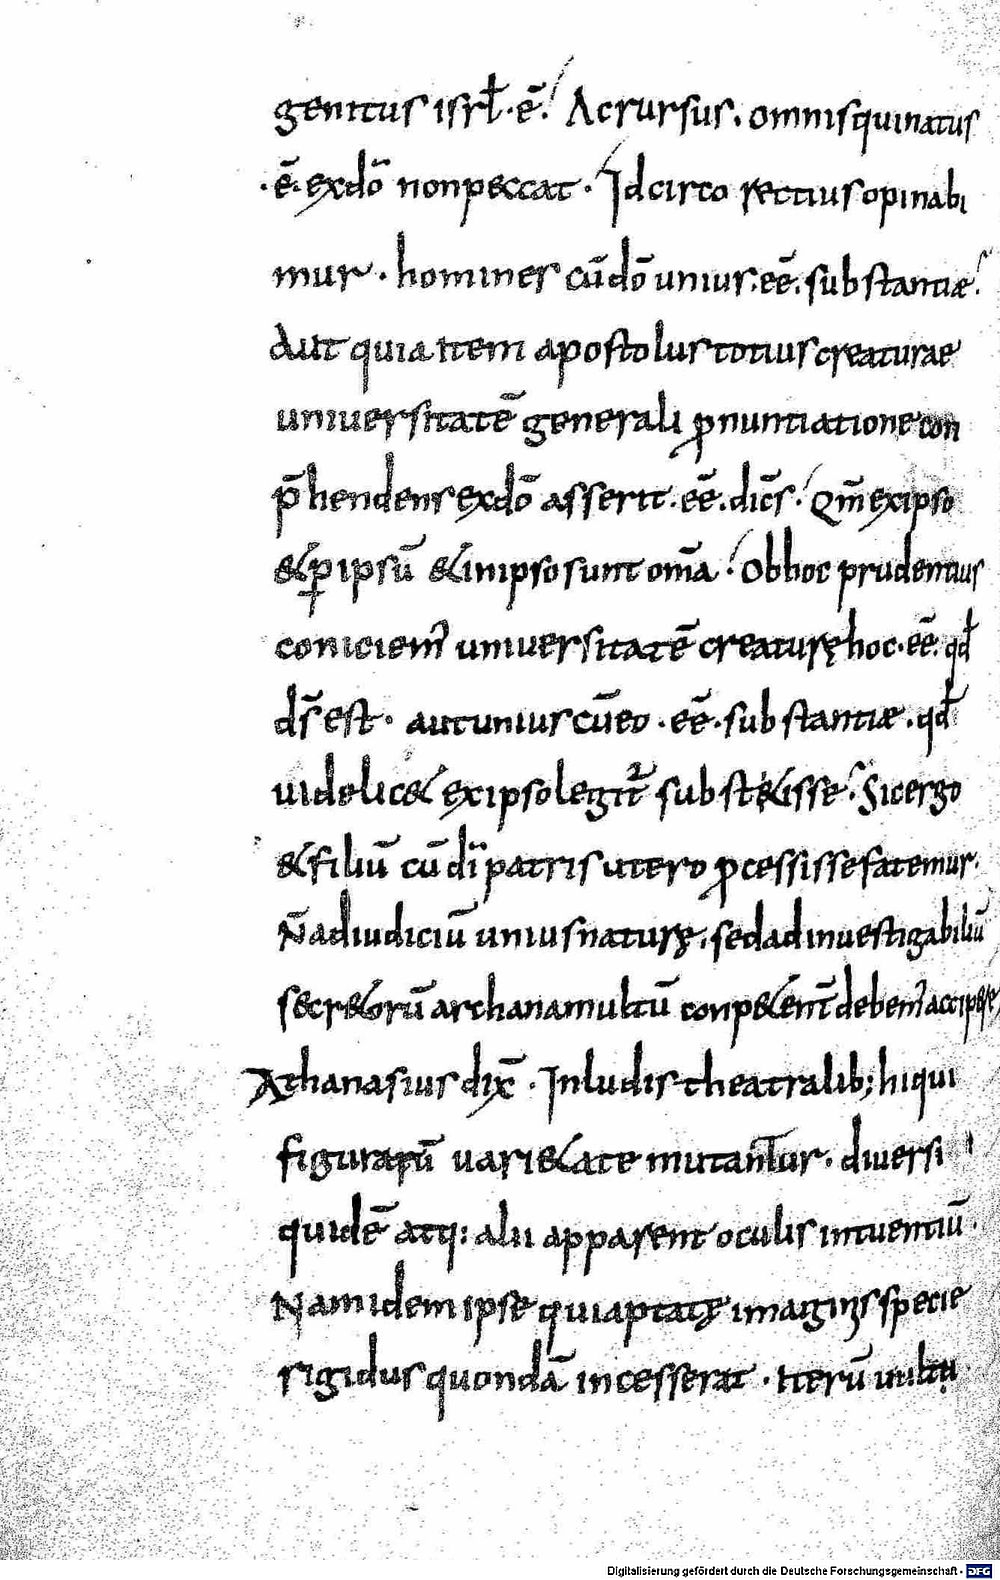 genitus isrł·ē· Ac rursus. omnis qui natus
·ē· ex dō non peccat · Idcirco rectius opinabi
mur · homines cū dō unius·eē·substantiae·
Aut quia item apostolus totius creaturae
uniuersitatē generali ꝓnuntiatione con
p̄hendens ex dō asserit·eē·dic̄s· Qm̄ ex ipso
& ꝑ ipsū & in ipso sunt om̄a · Ob hoc prudentius
coniciem᾿ uniuersitatē creaturę hoc·eē·qđ
dš est · aut unius cū eo ·eē·substantiae·qđ
uidelic& ex ipso legit᷑ subst&isse· Sic ergo
& filiū cū dī patris utero ꝓcessisse fatemur·
N̄ ad iudiciū unius naturę·sed ad inuestigabiliū
secr&orū archana multū conp&ent̄ debem᾿ accipere
Athanasius dix̄ · In ludis theatralib; hi qui
figurarū uari&ate mutantur· diuersi
quidē atq: alii apparent oculis intuentiū·
Nam idem ipse qui aptatę imaginis specie
rigidus quondā incesserat · iterū uultu
Digitalisierung gefördert durch die Deutsche Forschungsgemeinschaft - DFG